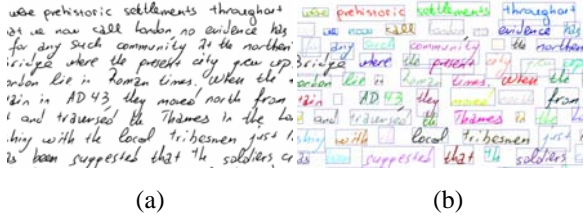 were prehistoric settlements throughout
at we now call London no evidence has
for any such community at the northern
ridge where the present city grew up
ondon lie in Roman times. When the
ain in AD 43, they moved north from
t and traversed the Thames in the Lo
hing with the local tribesmen just
as been suggested that the soldiers
(a)
were prehistoric settlements throughout
we now call evidence has
any such community the northern
ridge where the present city grew up
ondon lie in Roman times. When the
ain in AD 43 they moved from
and traversed the Thames in the
hing with the local tribesmen just
as suggested that the soldiers
(b)